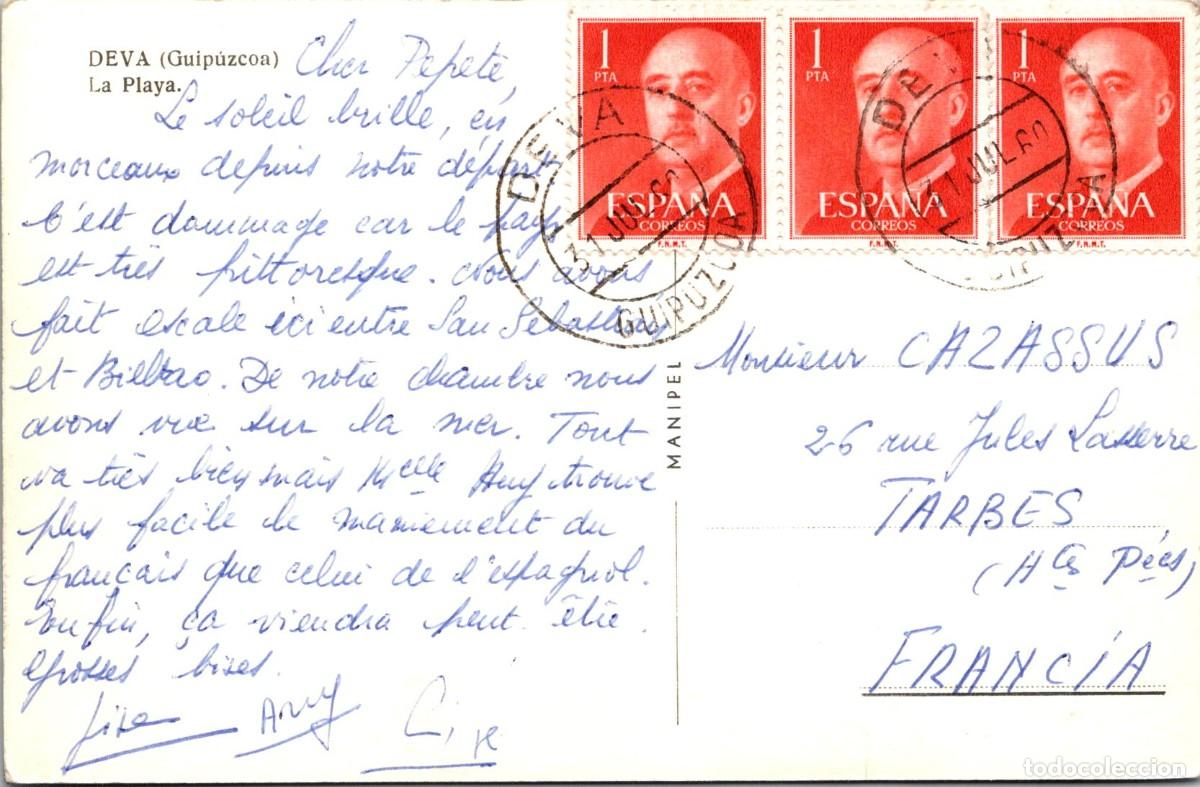 DEVA (Guipúzcoa)
La Playa.
Cher Pepete,
Le soleil brille, en
morceaux depuis notre départ
C'est dommage car le pays
est très pittoresque. Nous avons
fait escale ici entre San Sebastian
et Bilbao. De notre chambre nous
avons vue sur la mer. Tout
va très bien mais Melle Any trouve
plus facile le maniement du
français que celui de l'espagnol.
Enfin, ça viendra peut être.
Grosses bises.
Any
MANIPEL
1 PTA
ESPAÑA
CORREOS
F.N.M.T.
1 PTA
ESPAÑA
CORREOS
F.N.M.T.
1 PTA
ESPAÑA
CORREOS
F.N.M.T.
DEVA
31 JUL 60
GUIPUZCOA
DEVA
31 JUL 60
GUIPUZCOA
Monsieur CAZASSUS
26 rue Jules Lasserre
TARBES
(Htes Pées)
FRANCÍA
todocoleccion